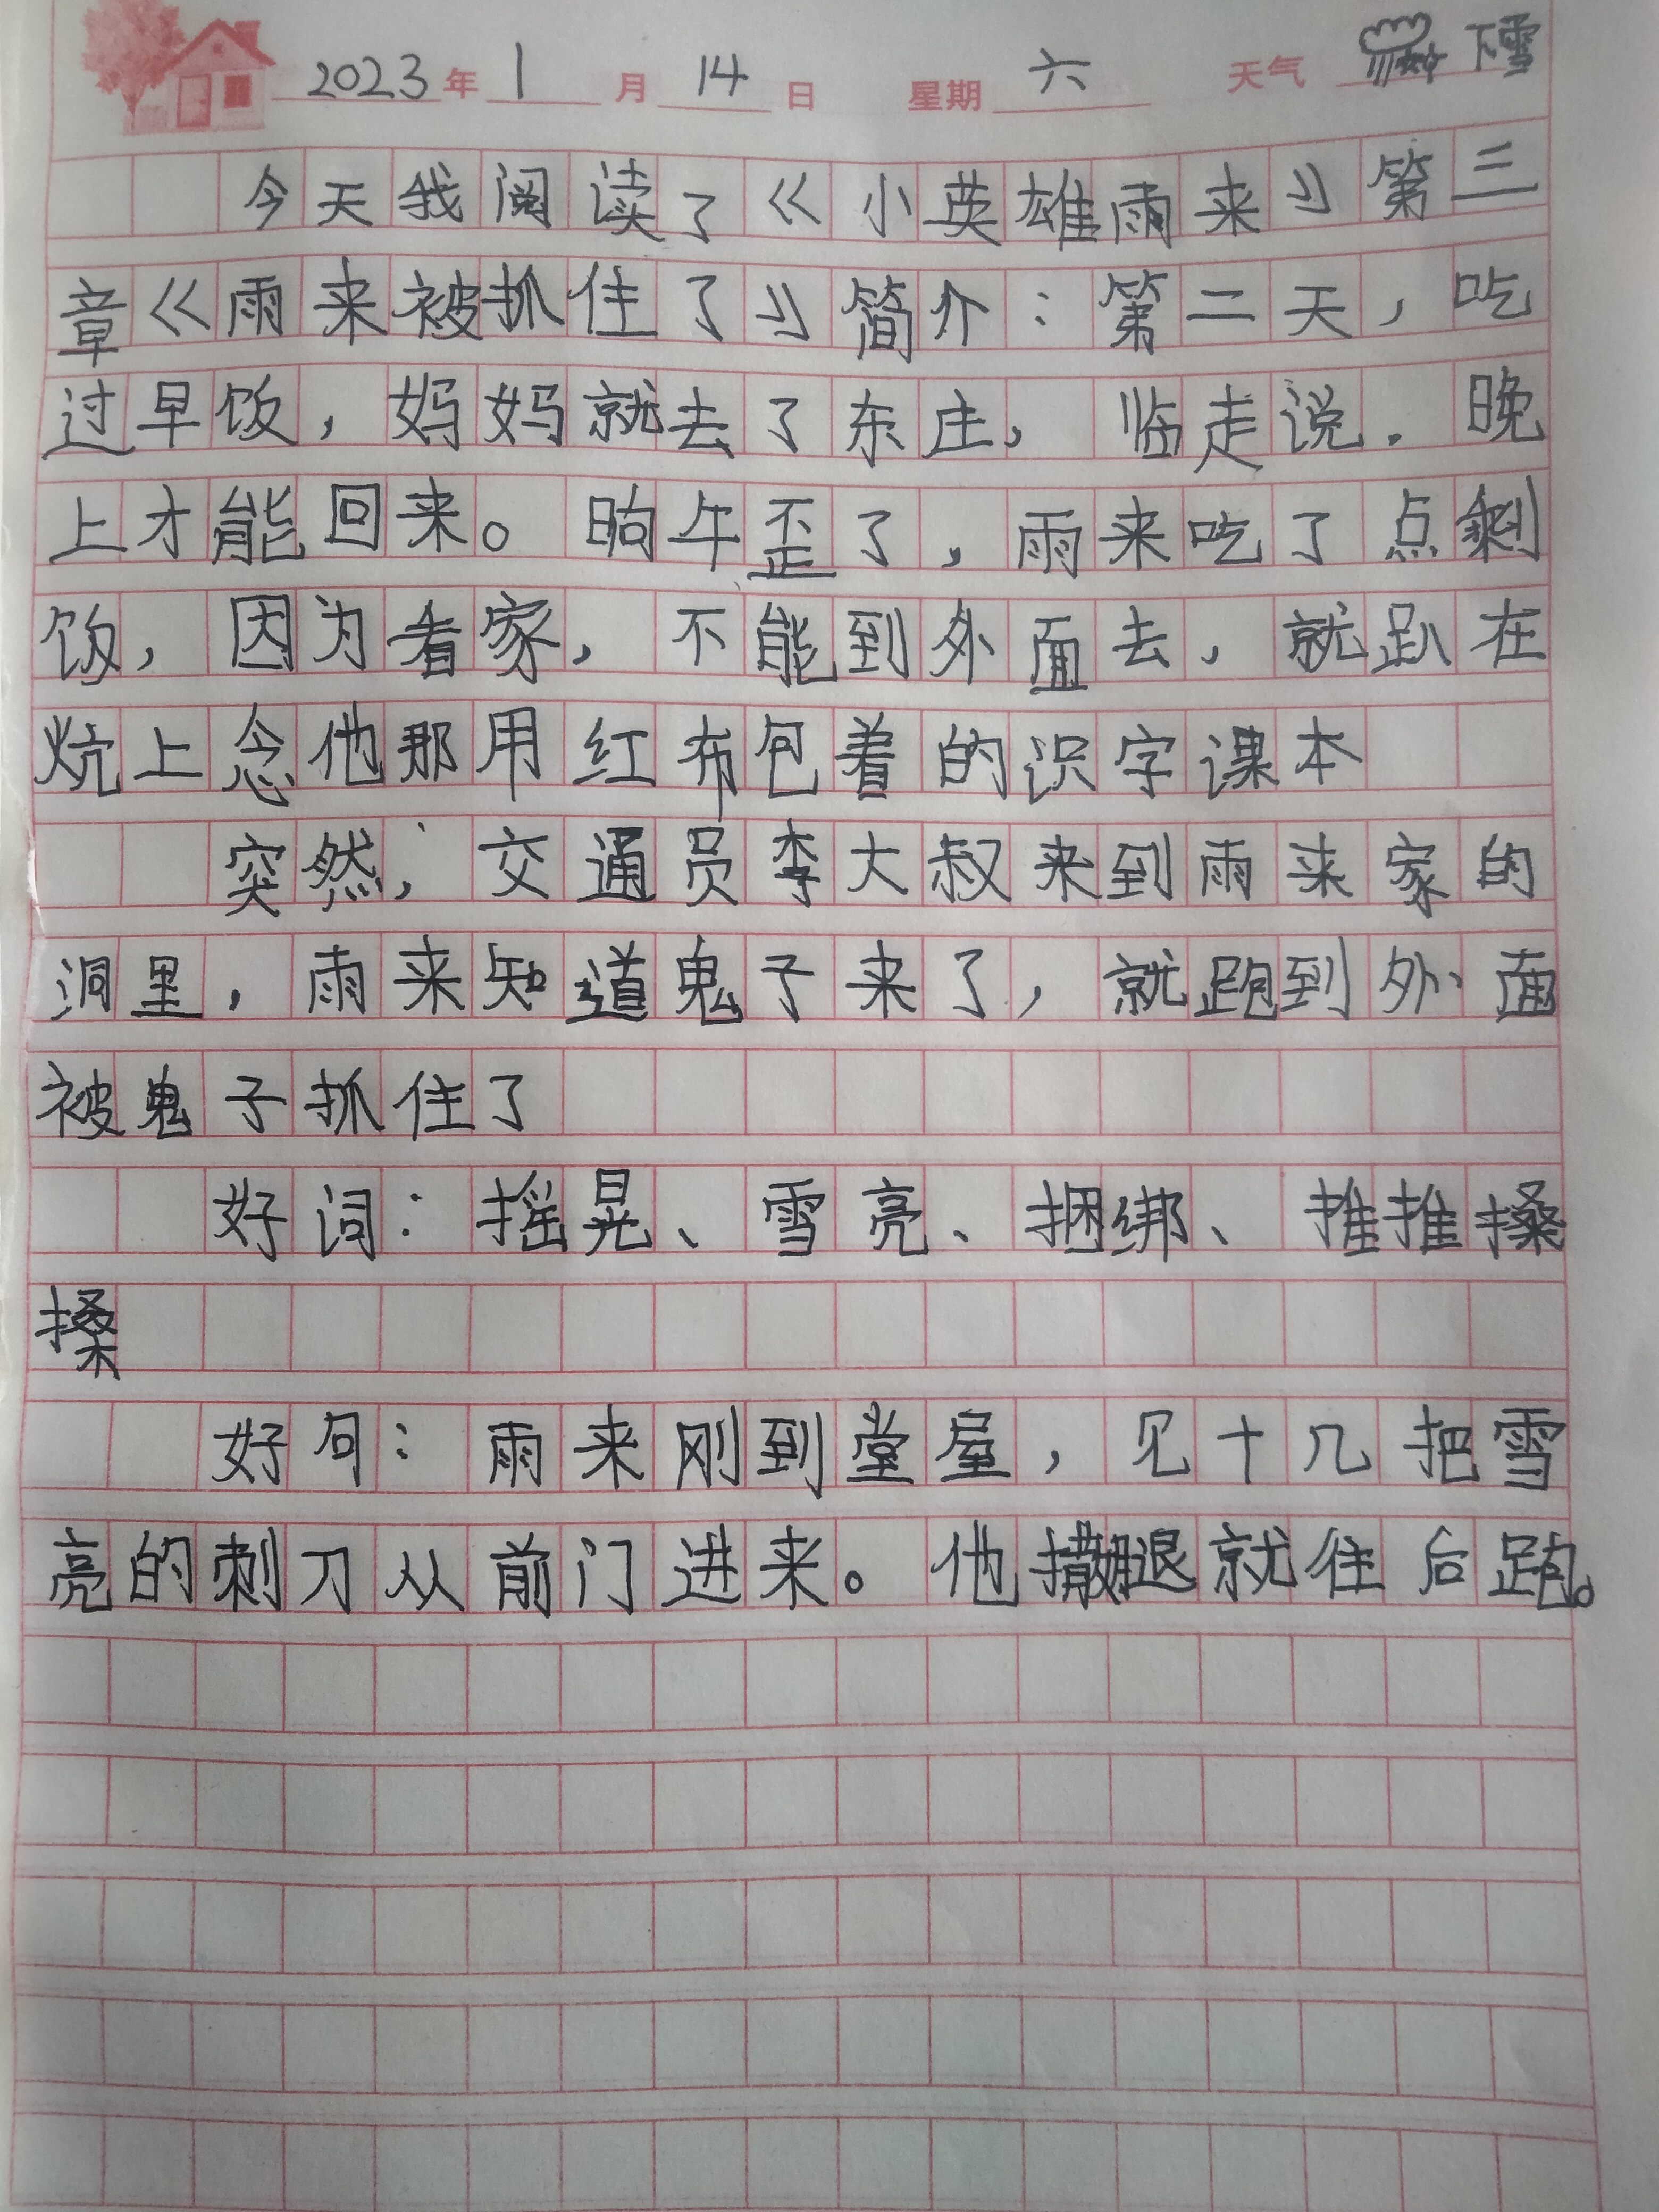 2023年1月14日 星期六 天气 下雪
今天我阅读了《小英雄雨来》第三
章《雨来被抓住了》简介：第二天，吃
过早饭，妈妈就去了东庄，临走说．晚
上才能回来。晌午歪了，雨来吃了点剩
饭，因为看家，不能到外面去，就趴在
炕上念他那用红布包着的识字课本
突然，交通员李大叔来到雨来家的
洞里，雨来知道鬼子来了，就跑到外面
被鬼子抓住了
好词：摇晃、雪亮、捆绑、推推搡
搡
好句：雨来刚到堂屋，见十几把雪
亮的刺刀从前门进来。他撒腿就往后跑。